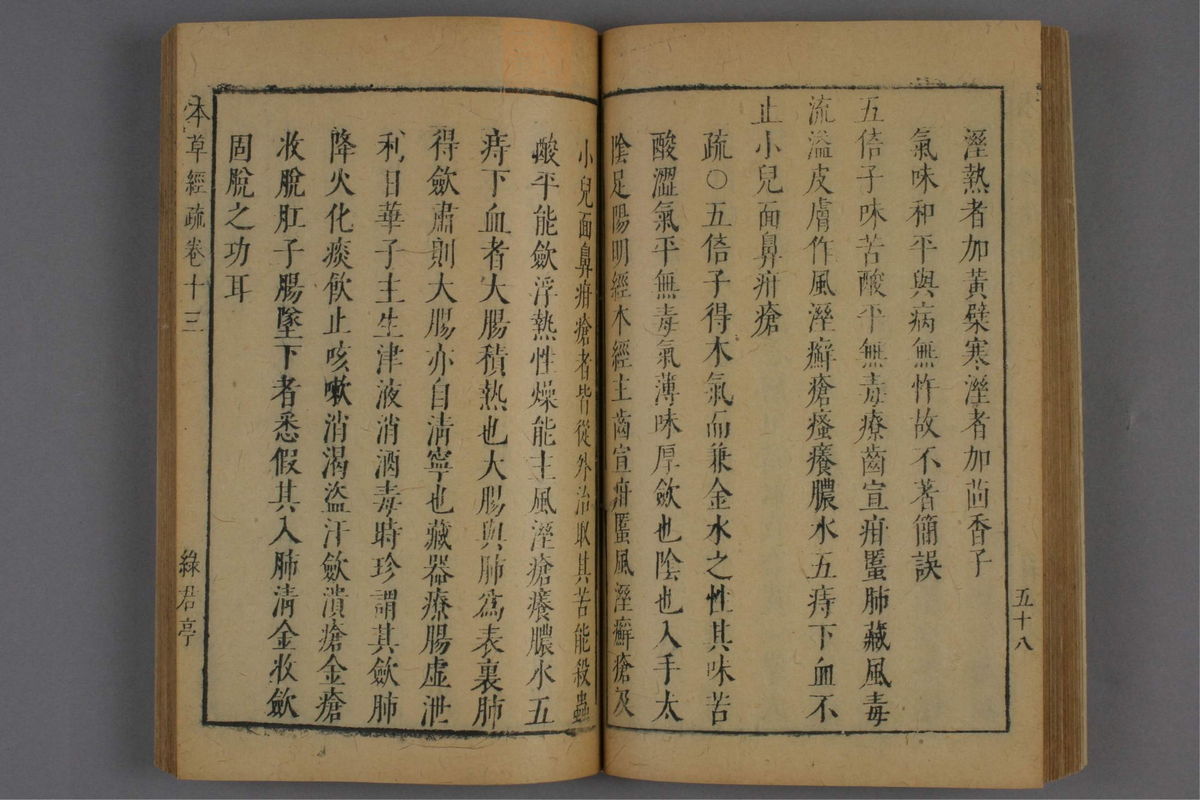 溼熱者加黃檗寒溼者加茴香子
氣味和平與病無忤故不著簡誤
五倍子味苦酸平無毒療齒宣疳䘌肺藏風毒
流溢皮膚作風溼癬瘡瘙癢膿水五痔下血不
止小兒面鼻疳瘡
疏○五倍子得木氣而兼金水之性其味苦
酸澀氣平無毒氣薄味厚斂也陰也入手太
陰足陽明經本經主齒宣疳䘌風溼癬瘡及
五十八
小兒面鼻疳瘡者皆從外治取其苦能殺蟲
酸平能斂浮熱性燥能主風溼瘡癢膿水五
痔下血者大腸積熱也大腸與肺爲表裏肺
得斂肅則大腸亦自清寧也藏器療腸虛泄
利日華子主生津液消酒毒時珍謂其斂肺
降火化痰飲止咳嗽消渴盜汗斂潰瘡金瘡
收脫肛子腸墜下者悉假其入肺清金收斂
固脫之功耳
本草經疏卷十三
綠君亭